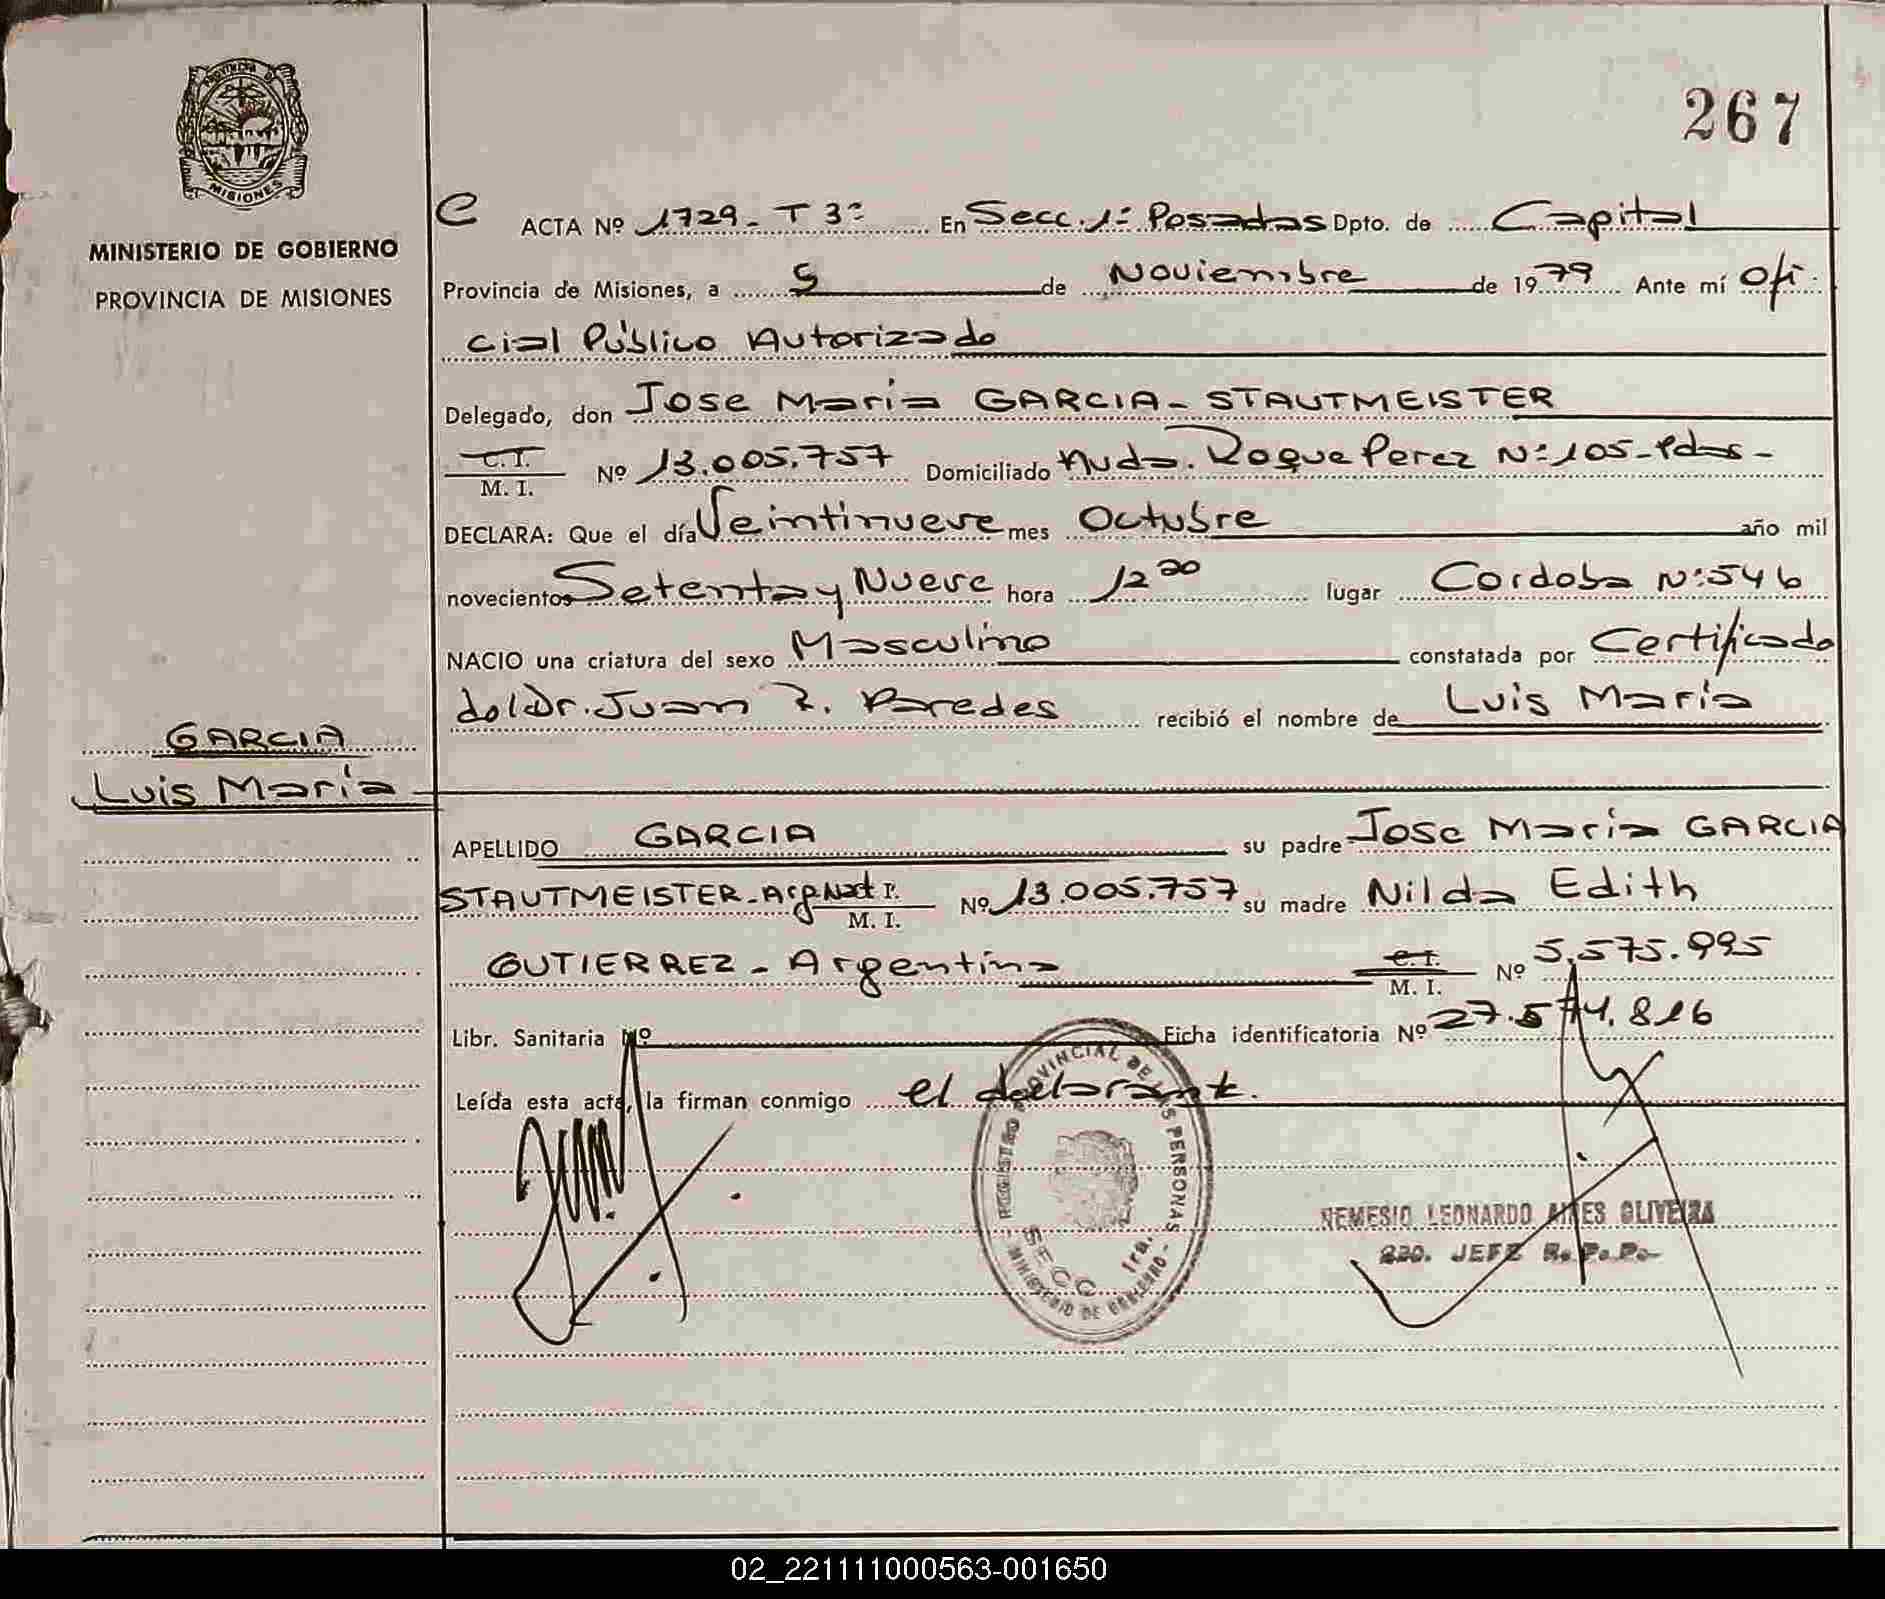 267
PROVINCIA DE
MISIONES
MINISTERIO DE GOBIERNO
PROVINCIA DE MISIONES
C ACTA Nº 1729 - T 3º En Secc. 1ª Posadas Dpto. de Capital
Provincia de Misiones, a 5 de Noviembre de 1979 Ante mí Ofi
cial Público Autorizado
Delegado, don Jose María GARCIA - STAUTMEISTER
C. I.
M. I. Nº 13.005.757 Domiciliado Avda. Roque Perez Nº 105 - Pdas -
DECLARA: Que el día Veintinueve mes Octubre año mil
novecientos Setenta y Nueve hora 12 20 lugar Cordoba Nº 546
NACIO una criatura del sexo Masculino constatada por Certificado
del Dr. Juan R. Paredes recibió el nombre de Luis María
GARCIA
Luis María
APELLIDO GARCIA su padre Jose María GARCIA
STAUTMEISTER - Arg. Nat. I.
M. I. Nº 13.005.757 su madre Nilda Edith
GUTIERREZ - Argentina C. I.
M. I. Nº 5.575.995
Libr. Sanitaria Nº Ficha identificatoria Nº 27.574.816
Leída esta acta, la firman conmigo el declarante.
REGISTRO PROVINCIAL DE LAS PERSONAS
SECC 1ra.
- MINISTERIO DE GOBIERNO -
NEMESIO LEONARDO AIRES OLIVEIRA
2DO. JEFE R. P. P.
02_221111000563-001650